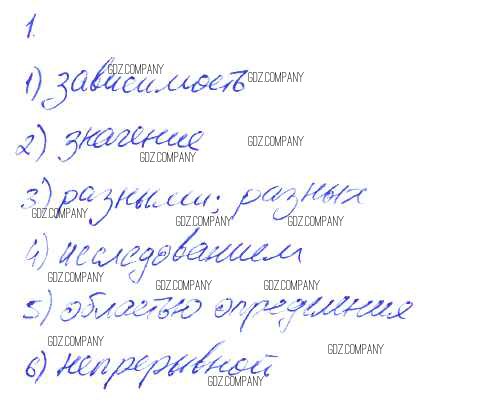 1.
GDZ.COMPANY
1) зависимость GDZ.COMPANY
2) значение GDZ.COMPANY
GDZ.COMPANY
3) разными; разных
GDZ.COMPANY GDZ.COMPANY GDZ.COMPANY
4) исследованием
GDZ.COMPANY GDZ.COMPANY GDZ.COMPANY
5) областью определения
GDZ.COMPANY GDZ.COMPANY
6) непрерывной
GDZ.COMPANY